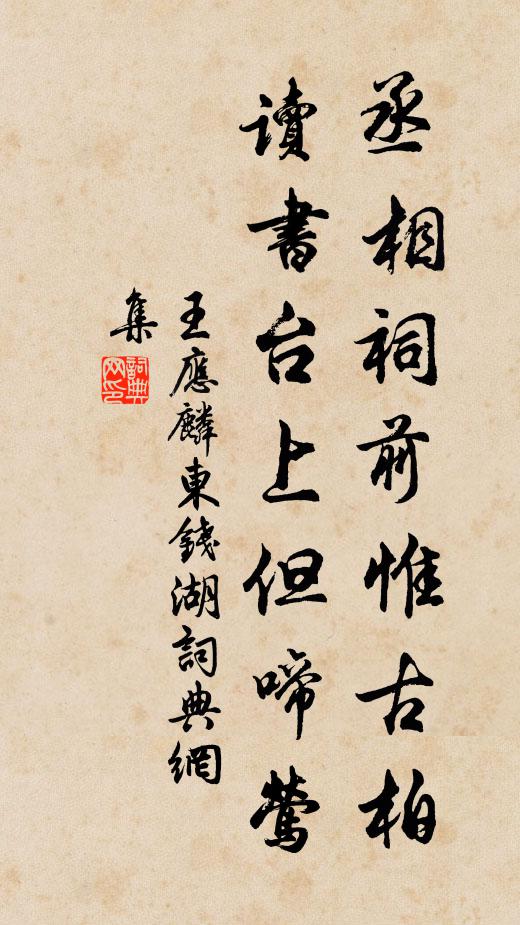 丞相祠前惟古柏
讀書台上但啼鶯
王應麟東錢湖詞典網
集
詞典网印